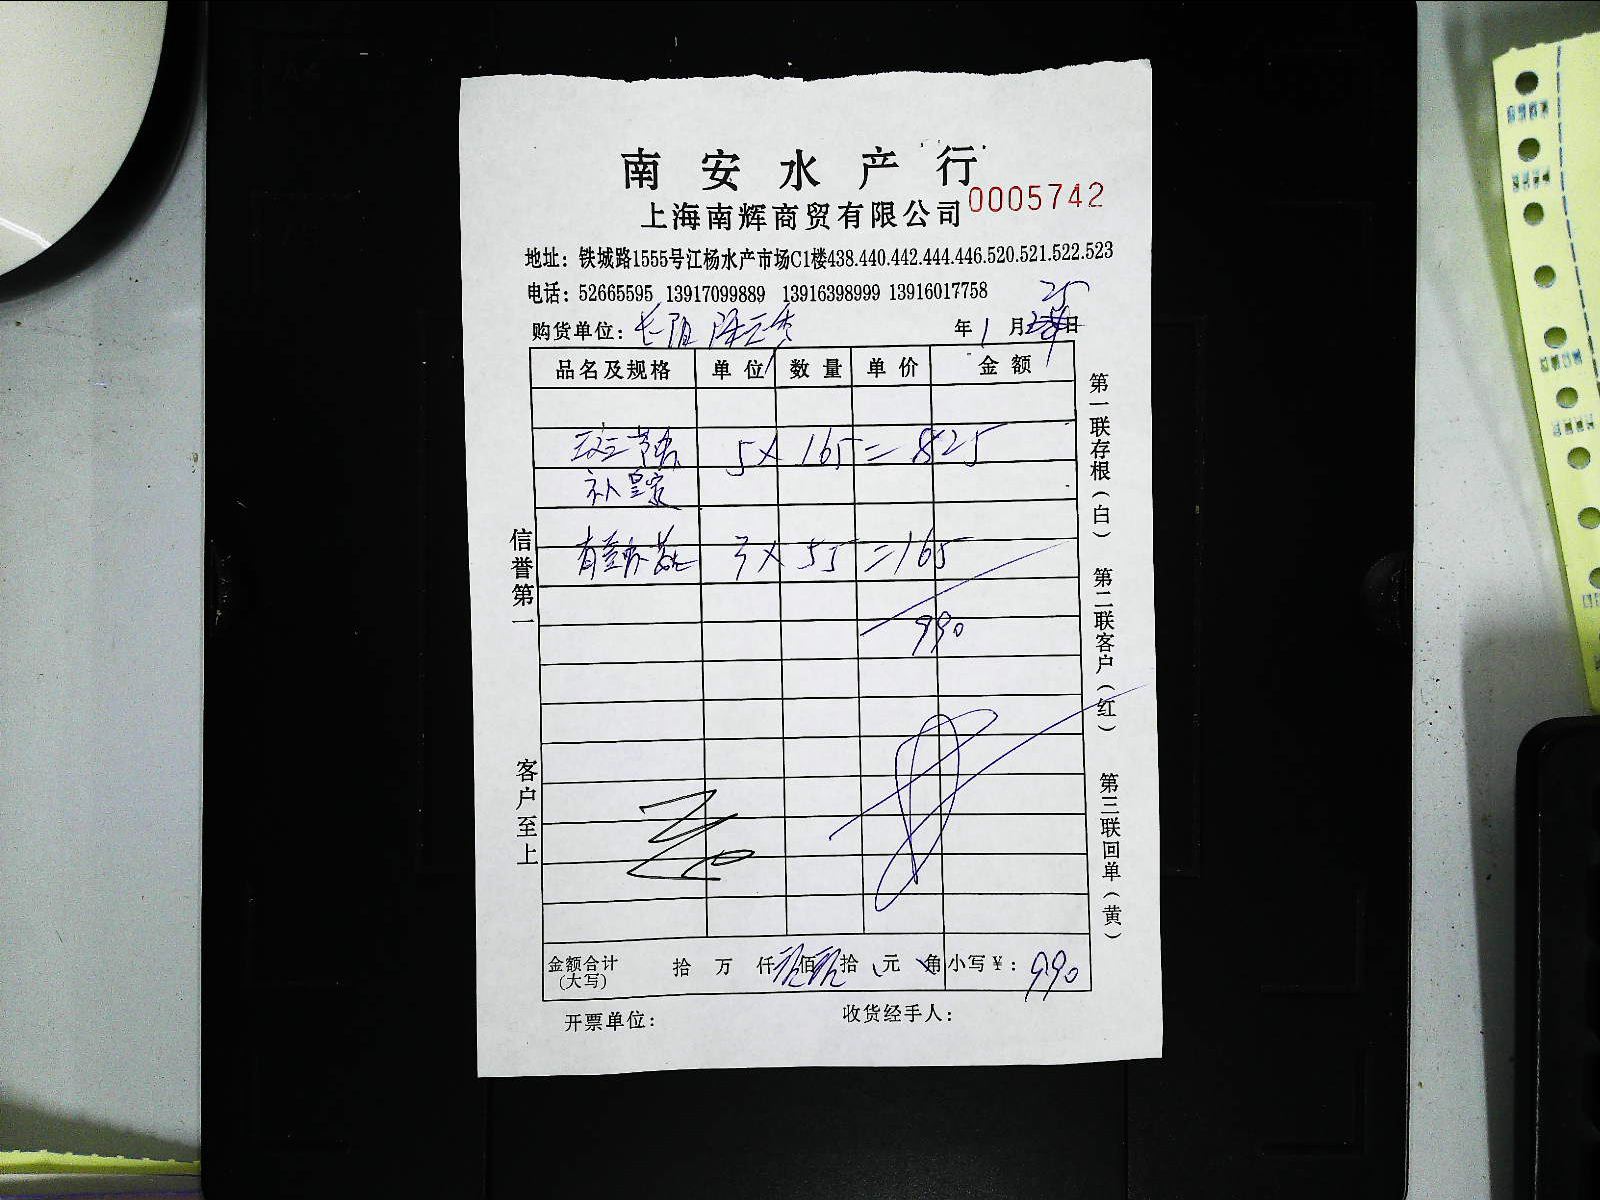 南安水产行
上海南辉商贸有限公司 0005742
地址：铁城路1555号江杨水产市场C1楼438.440.442.444.446.520.521.522.523
电话：52665595 13917099889 13916398999 13916017758
25
购货单位：长阳 年1月日
品名及规格 单位 数量 单价 金额
5× 165=825
补
3× 55=165
990
金额合计(大写) 拾 万 仟 玖佰玖拾 元 角 小写¥：990
开票单位： 收货经手人：
信誉第一
客户至上
第一联存根（白）
第二联客户（红）
第三联回单（黄）